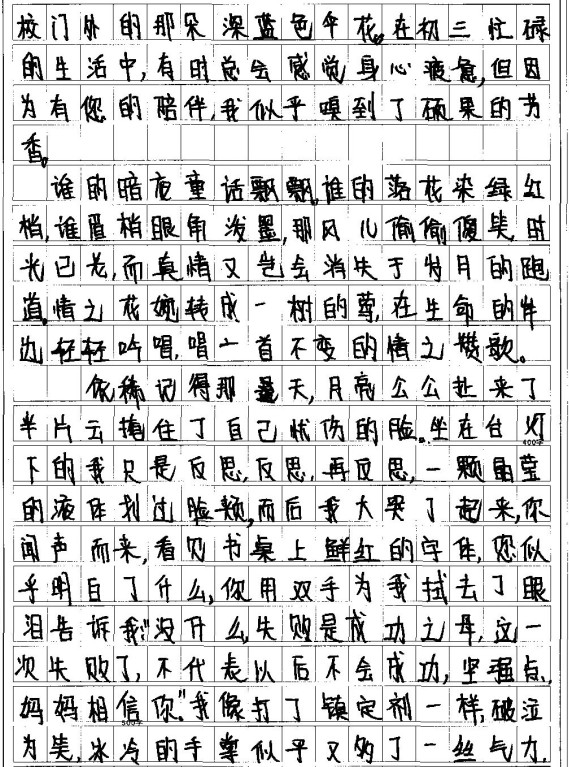 校门外的那朵深蓝色伞花。在初三忙碌
的生活中,有时总会感觉身心疲惫,但因
为有您的陪伴,我似乎嗅到了硕果的芳
香。
谁的暗夜童话飘飘。谁的落花染绿红
梢,谁眉梢眼角泼墨,那风儿偷偷傻笑。时
光已老,而真情又岂会消失于岁月的跑
道。情之花婉转成一树的尊,在生命的伴
边轻轻吟唱,唱一首不变的情之赞歌。
依稀记得那夏天,月亮公公扯来了
半片云掩住了自己忧伤的脸。坐在台灯
下的我只是反思,反思,再反思,一颗晶莹
的液体划过脸颊,而后我大哭了起来,你
闻声而来,看见书桌上鲜红的字体,您似
乎明白了什么,你用双手为我拭去了眼
泪告诉我:"没什么,失败是成功之母,这一
次失败了,不代表以后不会成功,坚强点,
妈妈相信你"我像打了镇定剂一样,破泣
为笑,冰冷的手掌似乎又多了一丝气力,
400字
500字